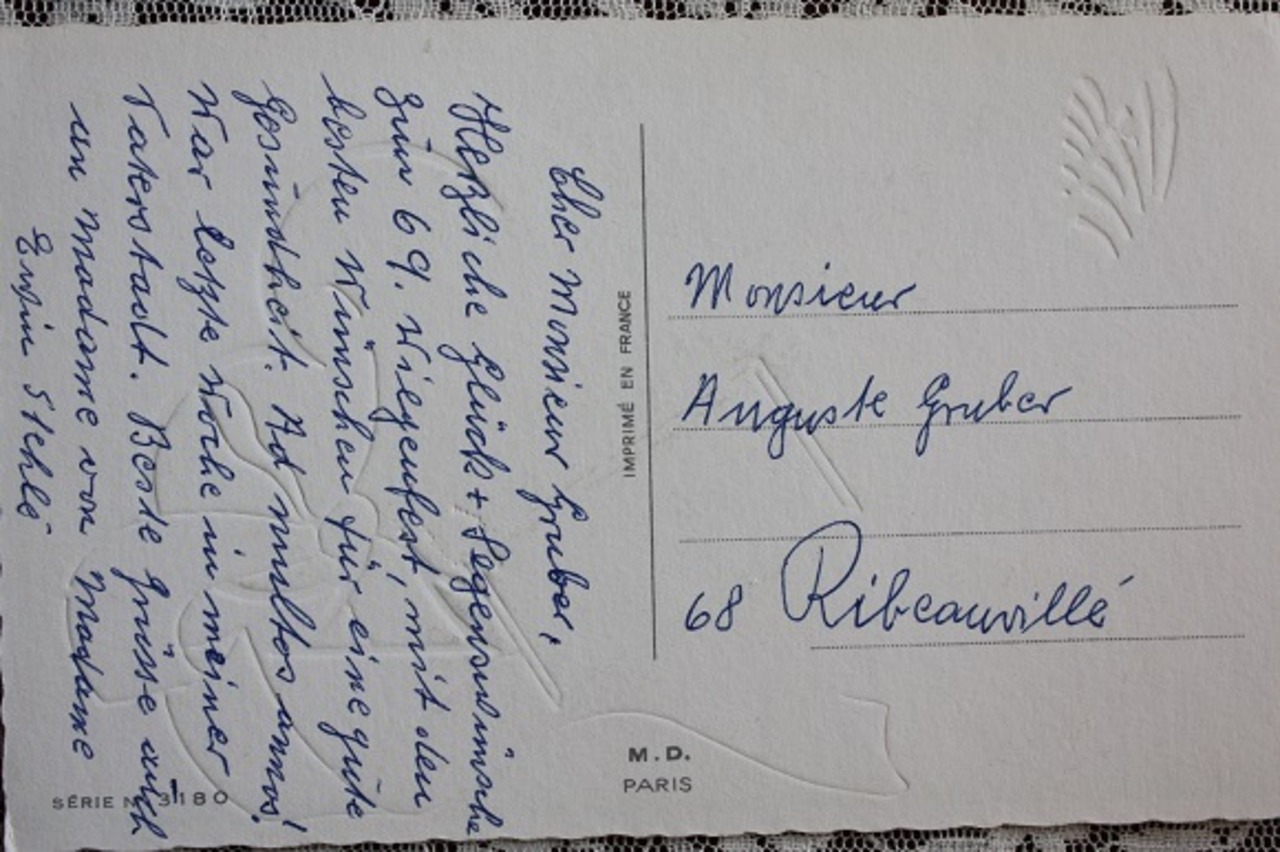 Cher Monsieur Gruber,
Herzliche Glück + Segenswünsche
zum 69. Wiegenfest, mit den
besten Wünschen für eine gute
Gesundheit. Ad multos annos!
War letzte Woche in meiner
Vaterstadt. Beste Grüsse auch
an Madame von Madame
Erwin Stehlé
SÉRIE N° 3180
IMPRIMÉ EN FRANCE
M. D.
PARIS
Monsieur
Auguste Gruber
68 Ribeauvillé